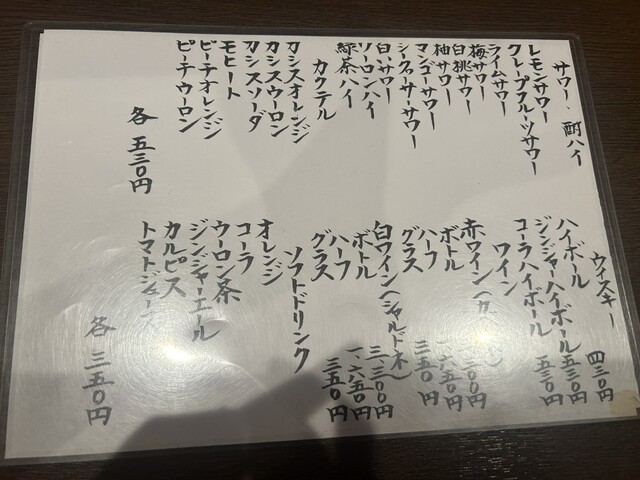 サワー・酎ハイ
レモンサワー
グレープフルーツサワー
ライムサワー
梅サワー
白桃サワー
柚サワー
マンゴーサワー
シークヮーサーサワー
白いサワー
ウーロンハイ
緑茶ハイ
カクテル
カシスオレンジ
カシスウーロン
カシスソーダ
モヒート
ピーチオレンジ
ピーチウーロン
各 五三〇円
ウィスキー 四三〇円
ハイボール 五三〇円
ジンジャーハイボール 五三〇円
コーラハイボール 五三〇円
ワイン
赤ワイン
ボトル 三、三〇〇円
ハーフ 一、六五〇円
グラス 三五〇円
白ワイン(シャルドネ)
ボトル 三、三〇〇円
ハーフ 一、六五〇円
グラス 三五〇円
ソフトドリンク
オレンジ
コーラ
ウーロン茶
ジンジャーエール
カルピス
トマトジュース
各 三五〇円